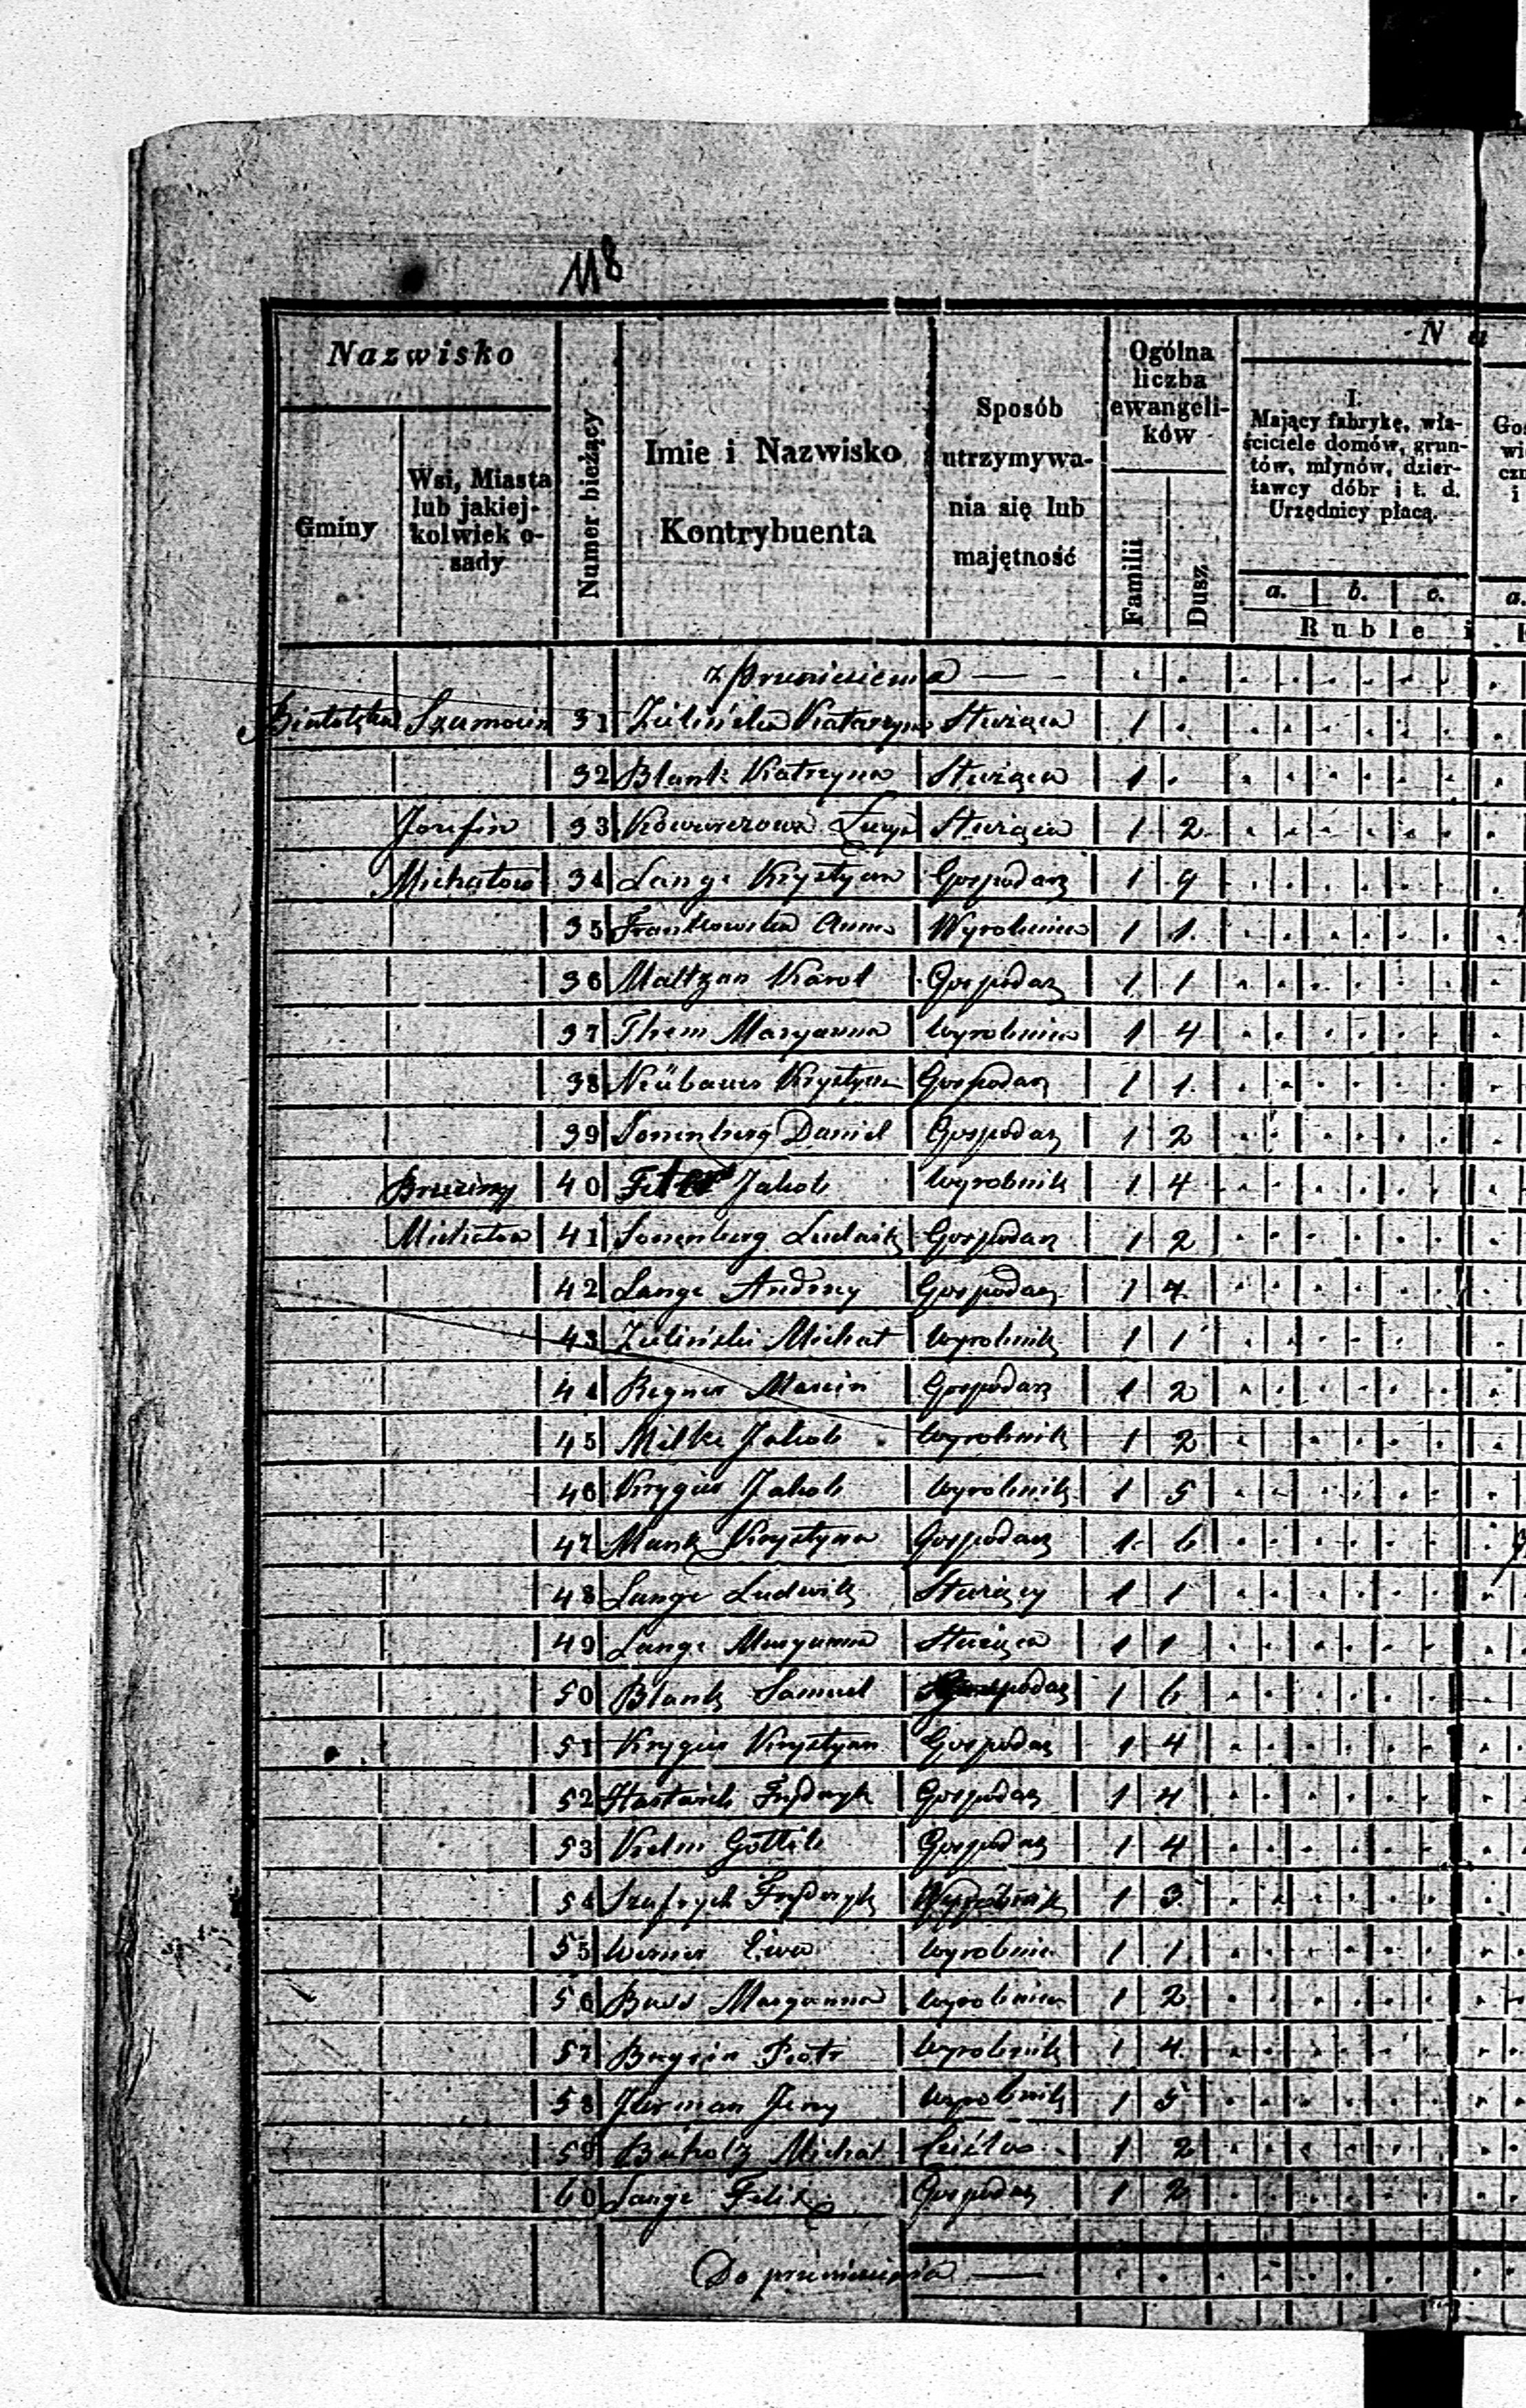 118
Nazwisko
Gminy
Wsi, Miasta
lub jakiej-
kolwiek o-
sady
Numer bieżący
Imie i Nazwisko
Kontrybuenta
Sposób
utrzymywa-
nia się lub
majętność
Ogólna
liczba
ewangeli-
ków
Familii
Dusz.
N a
I.
Mający fabrykę, wła-
ściciele domów, grun-
tów, młynów, dzier-
żawcy dóbr i t. d.
Urzędnicy płacą.
a. b. c. a.
Ruble i
z przeniesienia
Białołęka Szamocin 31 Zielińska Katarzyna Służąca 1
32 Blank Katrzyna Służąca 1
Jozefin 33 Służąca 1 2
Michałow 34 Lange Krystyan Gospodarz 1 9
35 Frankowska Anna Wyrobnica 1 1
36 Maltzan Karol Gospodarz 1 1
37 Them Maryanna Wyrobnica 1 4
38 Neübauer Krystyan Gospodarz 1 1
39 Sonenberg Daniel Gospodarz 1 2
Brzeziny 40 Jakob Wyrobnik 1 4
Michałow 41 Sonenberg Ludwik Gospodarz 1 2
42 Lange Andrzej Gospodarz 1 4
43 Zieliński Michał Wyrobnik 1 1
44 Regner Marcin Gospodarz 1 2
45 Milke Jakob Wyrobnik 1 2
46 Krygier Jakob Wyrobnik 1 5
47 Munk Krystyna Gospodarz 1 6
48 Lange Ludwik Służący 1 1
49 Lange Maryanna Służąca 1 1
50 Blank Samuel Gospodarz 1 6
51 Krygier Krystyan Gospodarz 1 4
52 Fryderyk Gospodarz 1 4
53 Kelm Gottlib Gospodarz 1 4
54 Fryderyk Wyrobnik 1 3
55 Werner Ewa Wyrobnica 1 1
56 Buss Maryanna Wyrobnica 1 2
57 Piotr Wyrobnik 1 4
58 Jerzy Wyrobnik 1 5
59 Buholz Michał Cieśla 1 2
60 Lange Felix Gospodarz 1 2
Do przeniesienia